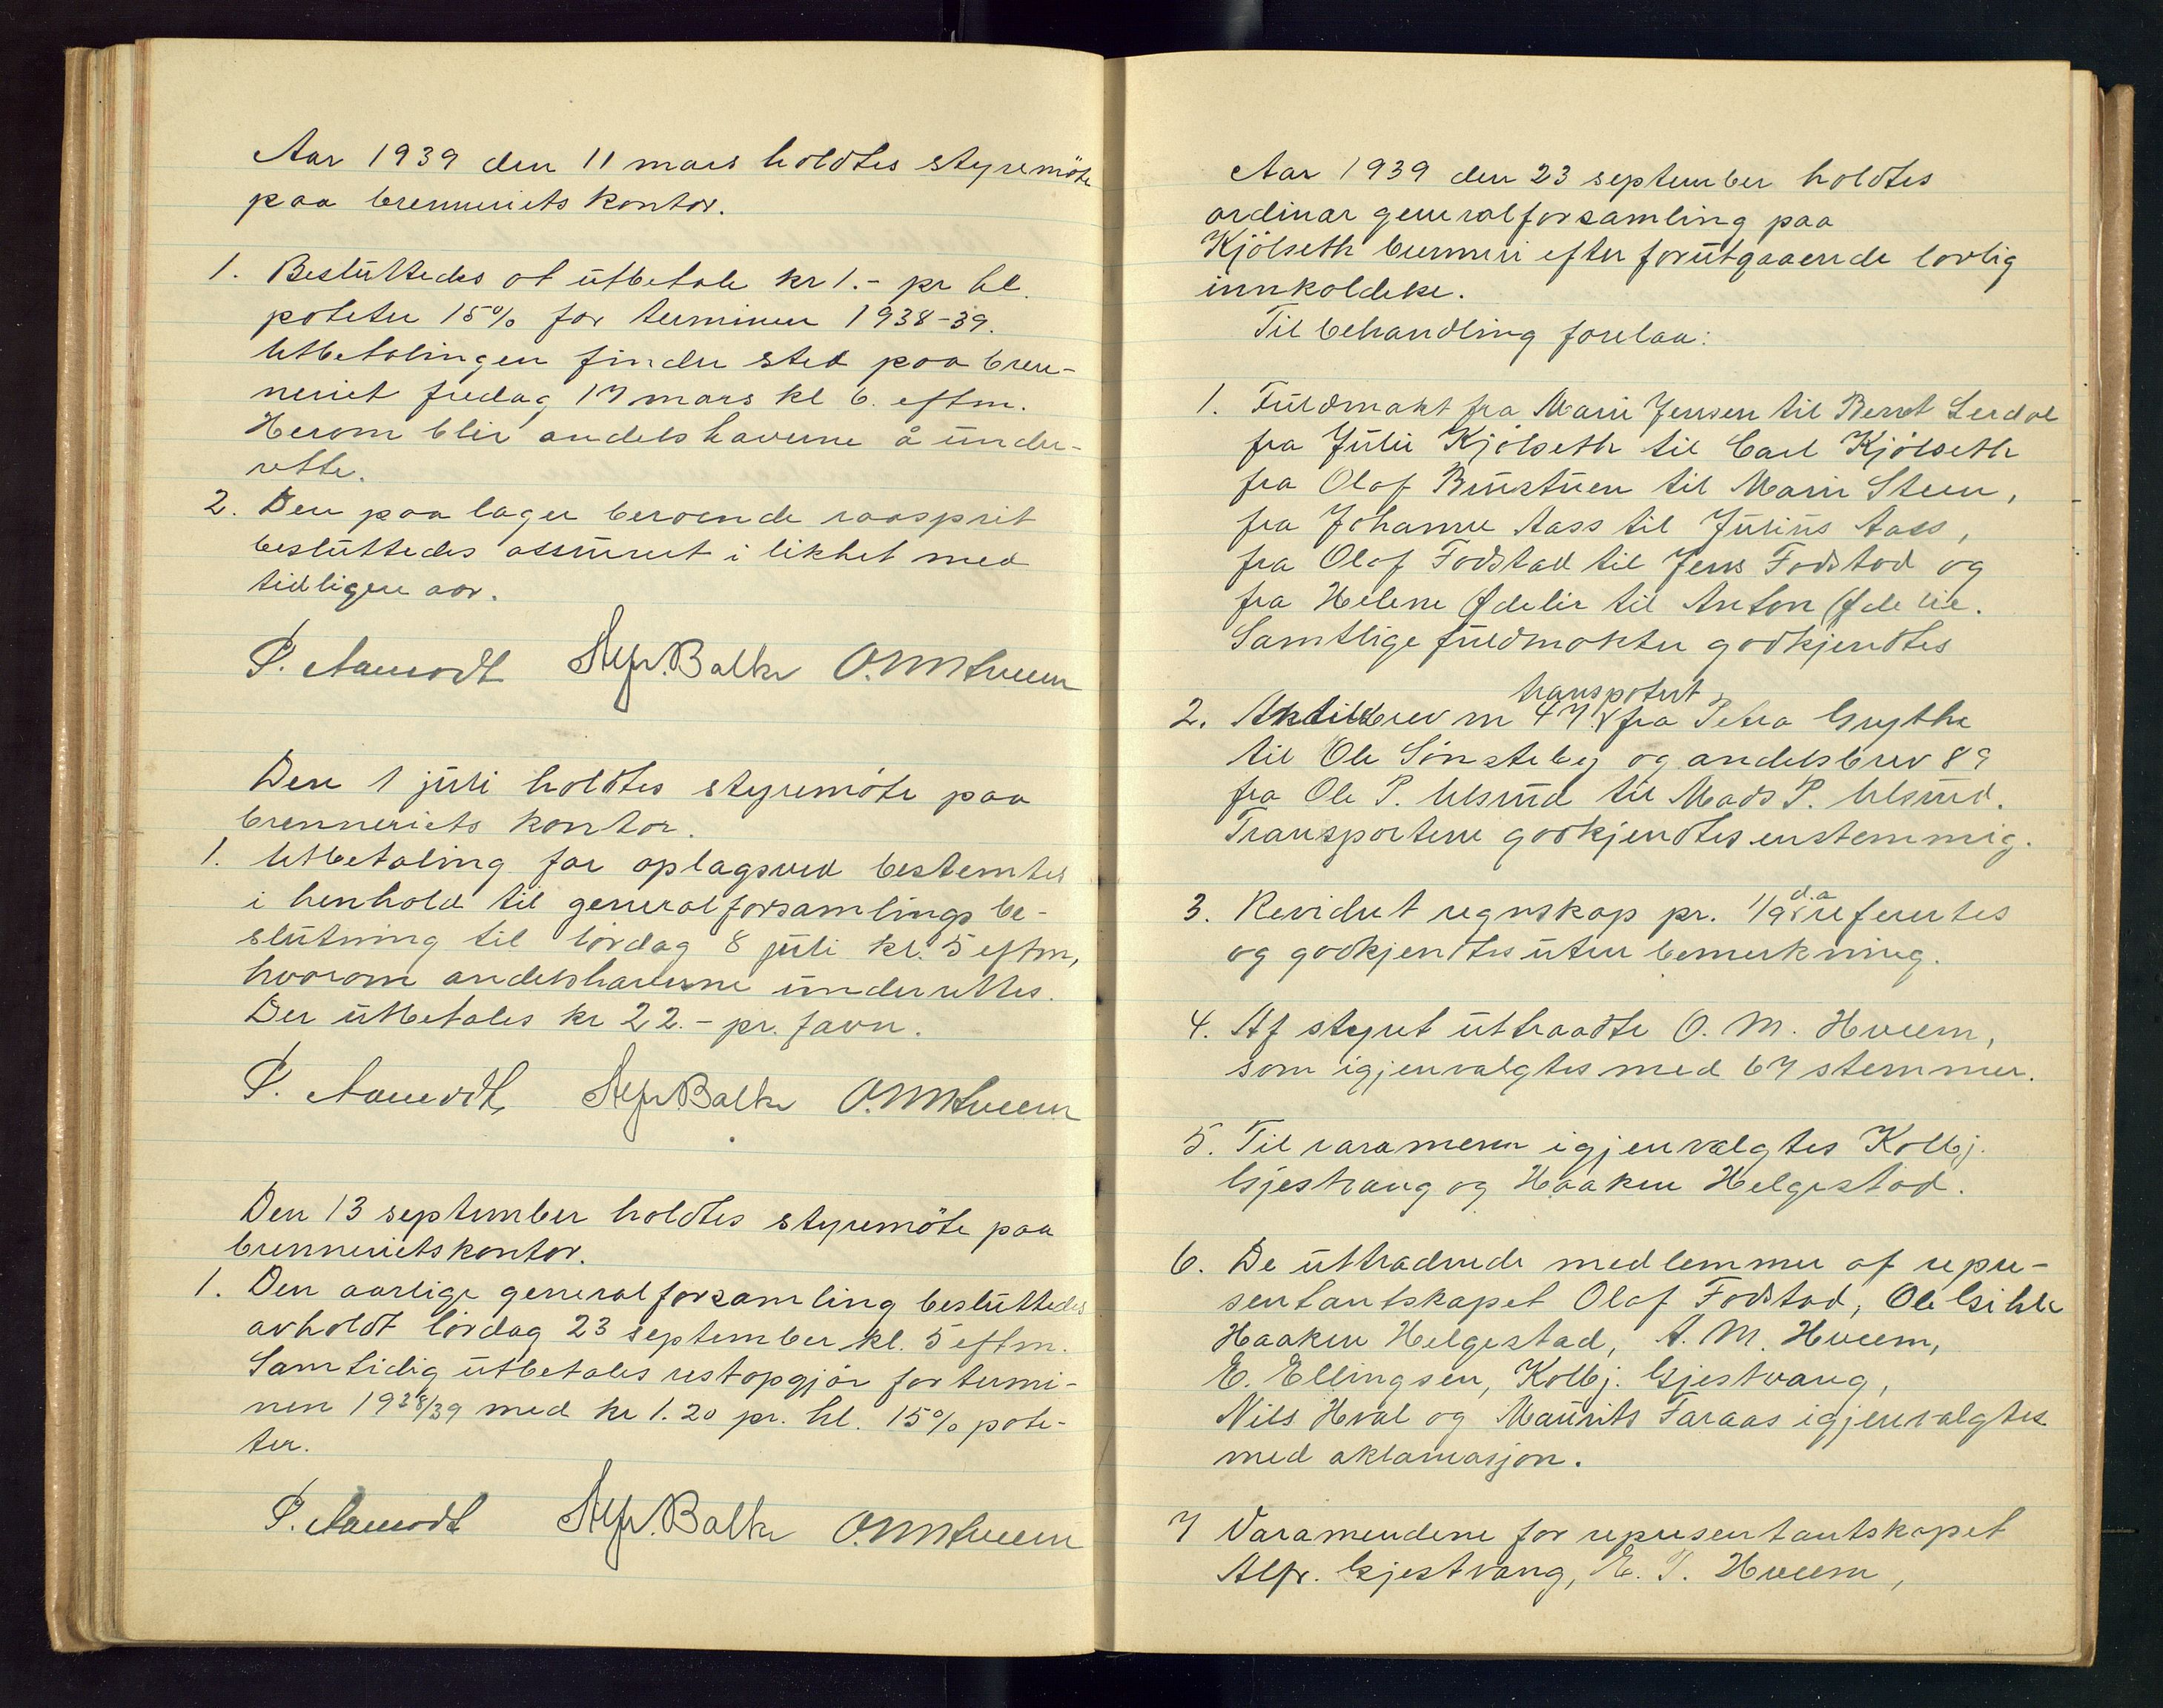 Aar 1939 den 11 mars holdtes styremöte
paa brenneriets kontor.
1. Besluttedes at utbetale kr 1.- pr hl.
poteter 15% for terminen 1938-39.
Utbetalingen finder sted paa bren-
neriet fredag 17 mars kl 6. eftm.
Herom blir andelshaverne å under-
rette.
2. Den paa lager beroende raasprit
besluttedes assurert i likhet med
tidligere aar.
P. Aamodt Alfr. Balke O.M.Hveem
Den 1 juli holdtes styremöte paa
brenneriets kontor.
1. Utbetaling for oplagsved bestemtes
i henhold til generalforsamlings be-
slutning til lördag 8 juli kl. 5 eftm,
hvorom andelshaverne underrettes.
Der utbetales kr 22.- pr. favn.
P. Aamodt Alfr. Balke O.M.Hveem
Den 13 september holdtes styremöte paa
brenneriets kontor.
1. Den aarlige generalforsamling besluttedes
avholdt lördag 23 september kl. 5 eftm.
Samtidig utbetales restopgjör for termi-
nen 1938/39 med kr 1.20 pr. hl. 15% pote-
ter.
P. Aamodt Alfr. Balke O.M.Hveem
Aar 1939 den 23 september holdtes
ordinær generalforsamling paa
Kjölseth brenneri efter forutgaaende lovlig
innkoldelse.
Til behandling forelaa:
1. Fuldmakt fra Marie Jensen til Bernt Lerdal
fra Julie Kjölseth til Carl Kjölseth
fra Olaf Brustuen til Marie Steen,
fra Johanne Aass til Julius Aass,
fra Olaf Fodstad til Jens Fodstad og
fra Helene Ødelie til Anton Ødelie.
Samtlige fuldmakter godkjendtes
transportert
2. Andelsbrev nr 47. fra Petra Grythe
til Ole Sönsteby og andelsbrev 89
fra Ole P. Ulsrud til Mads P. Ulsrud.
Transportene godkjendtes enstemmig.
3. Revidert regnskap pr. 1/9 d.a refereertes
og godkjentes uten bemerkning.
4. Af styret uttraadte O. M. Hveem,
som igjenvalgtes med 67 stemmer.
5. Til varamenn igjenvalgtes Kolbj.
Gjestvang og Haaken Helgestad.
6. De uttrædende medlemmer af repre-
sentantskapet Olaf Fodstad, Ole Gihle
Haaken Helgestad, A. M. Hveem,
E. Ellingsen, Kolbj. Gjestvang,
Nils Hval og Maurits Faraas igjenvalgtes
med aklamasjon.
7 Varamendene for representantskapet
Alfr. Gjestvang, E. T. Hveem,